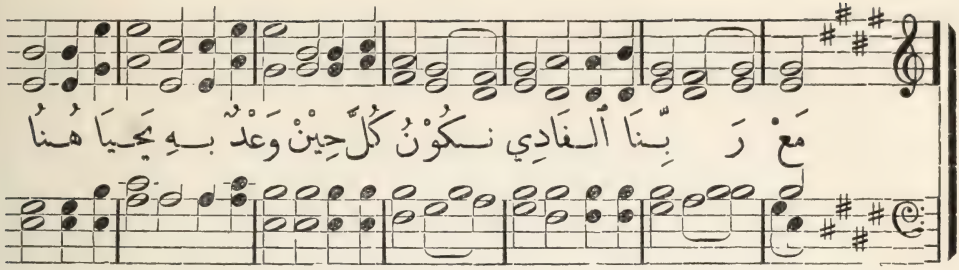 مَعْ رَ بِّنَا ٱلْفَادِي نَسكُوْنُ كُلَّ حِيْنْ وَعْدٌ بِهِ يَحْيَا هُنَا